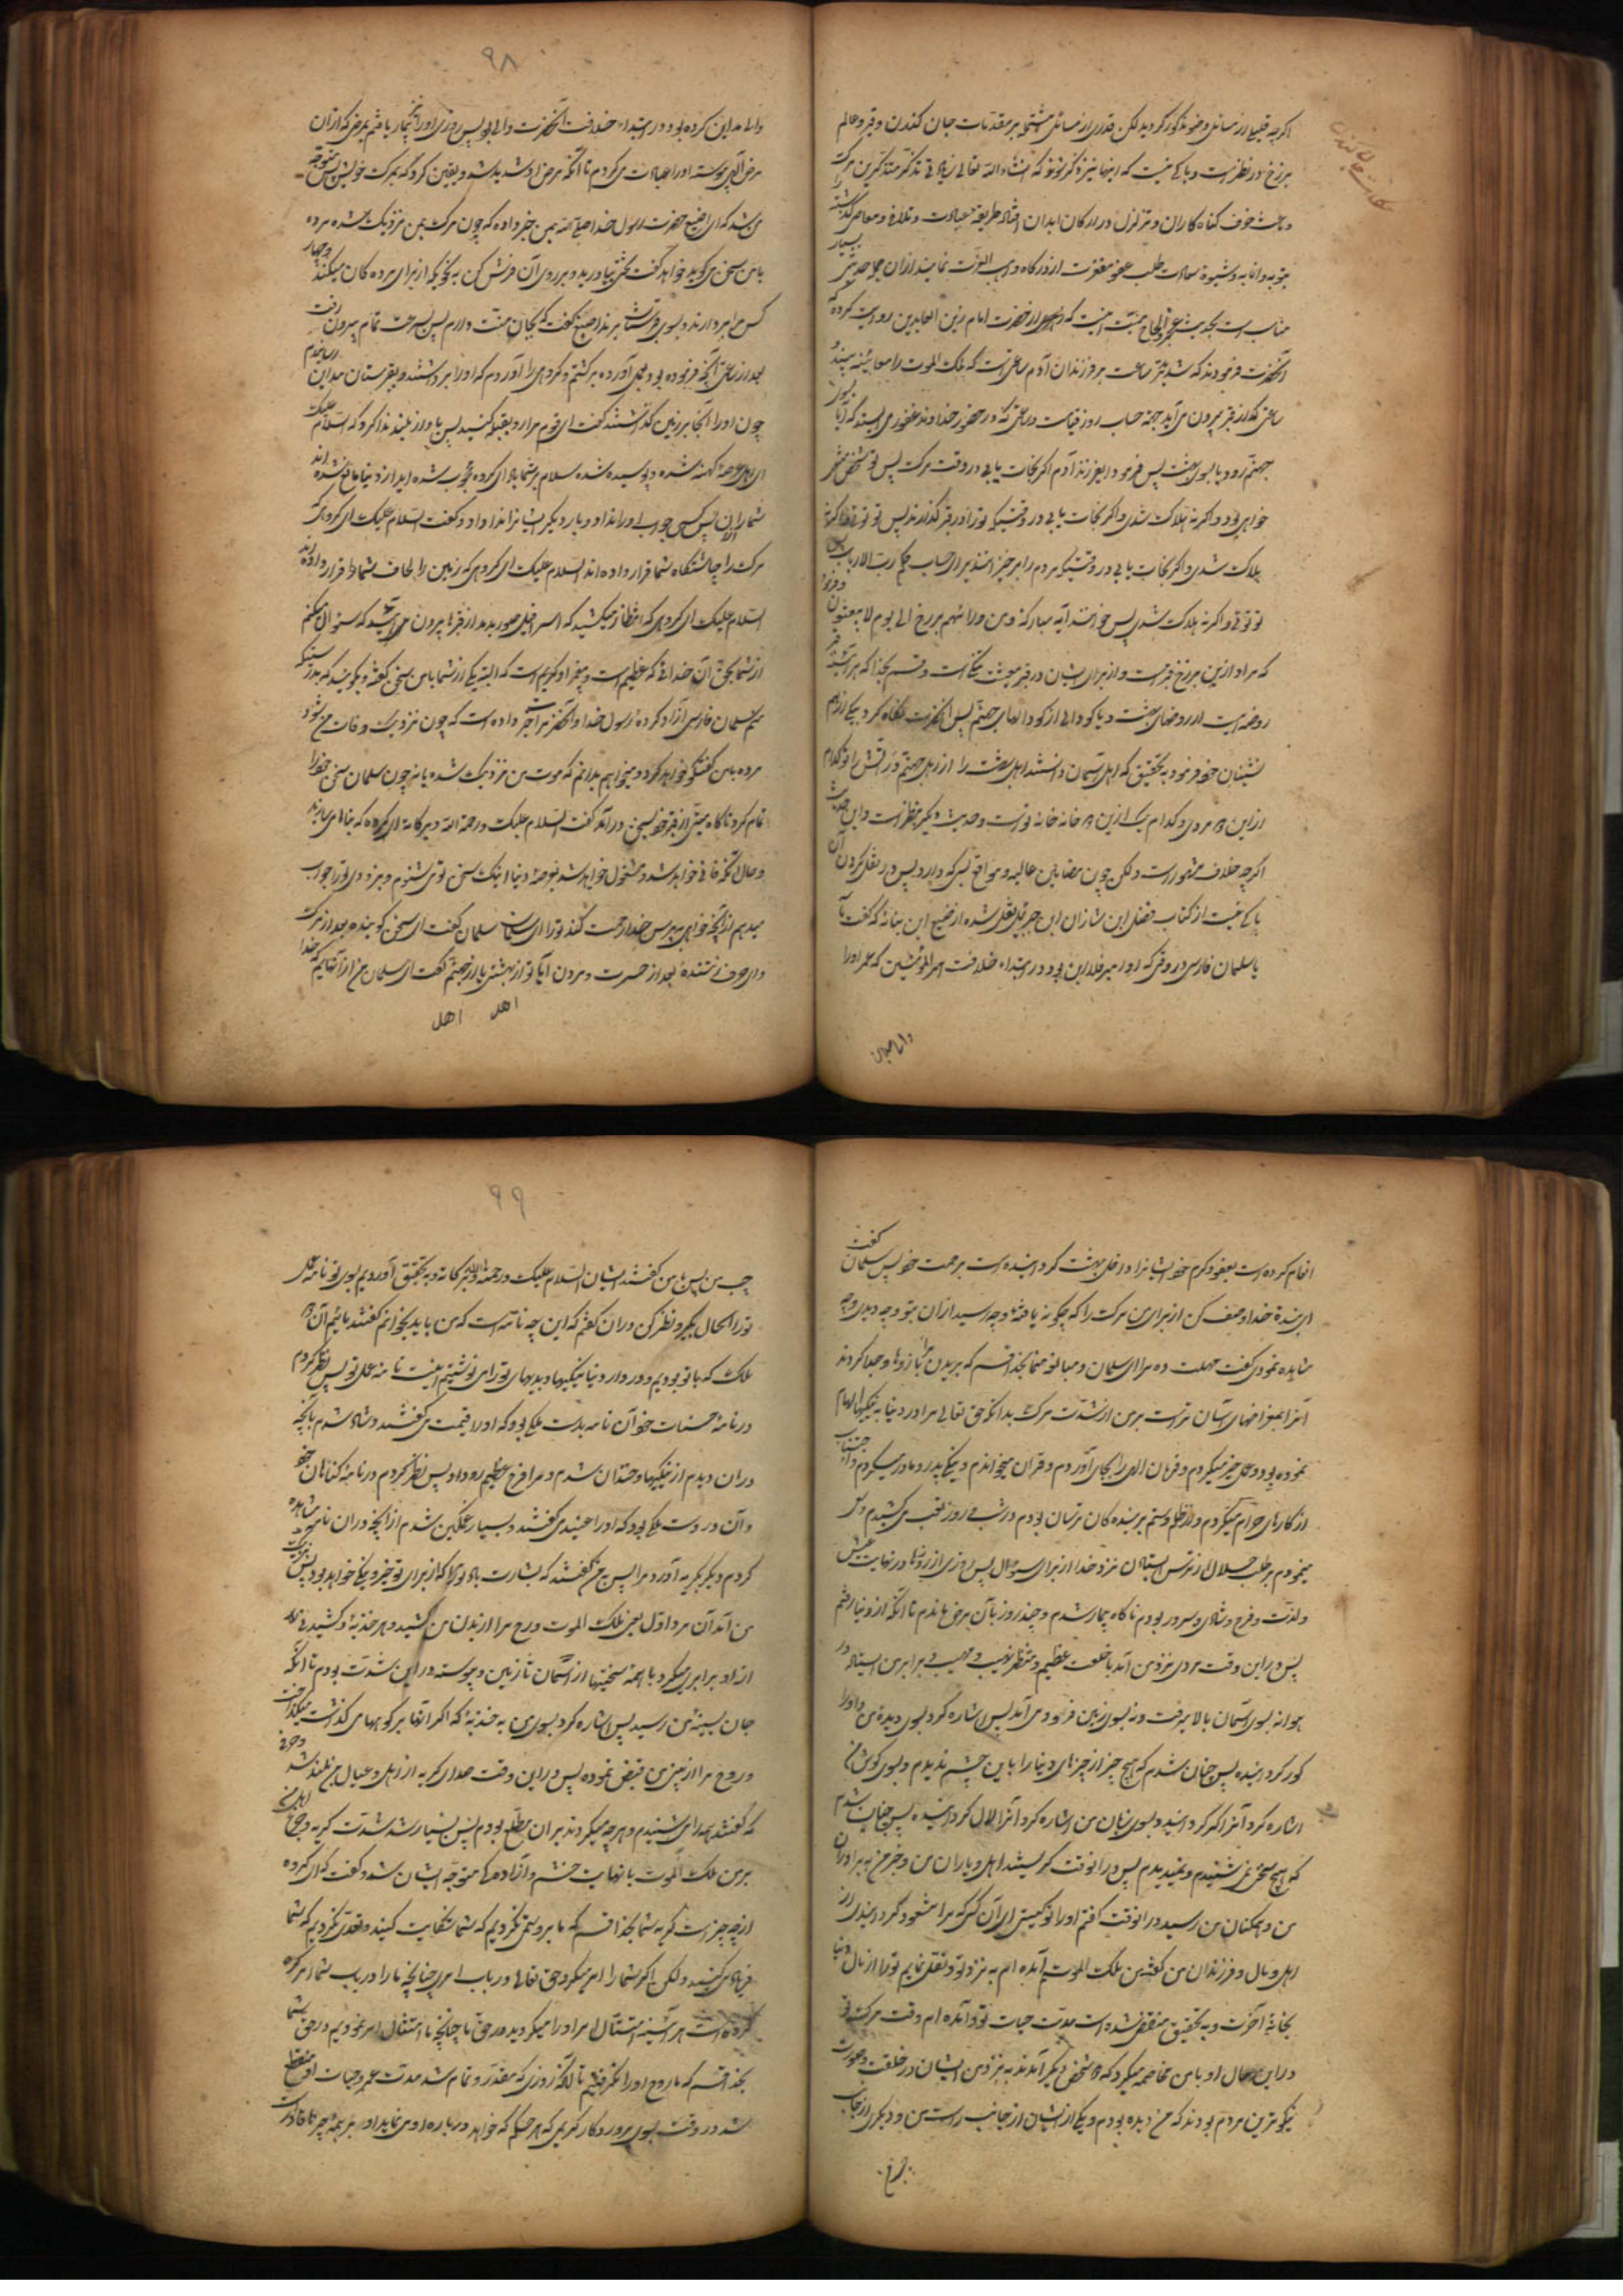 اکرچه قلیلی از مسائل وضو مذکور کردید لکن قدری از مسائل مشتمل بر مقدمات جان کندن و قبر و عالم
برزخ در نظر است و باکی نیست که اینها نیز ذکر شود که انشاء الله تعالی
و باعث خوف کناه کاران و تزلزل در ارکان ابدان
بتوبه و انابه و شیوهٔ سعادت طلب عفو مغفرت از درکاه واهب العزت نمایند از آن جمله حدیثی
مناسب است که از حضرت امام زین العابدین روایت کرده که
آنحضرت فرمودند که شدیدترین ساعت بر فرزندان آدم ساعتی است که ملک الموت را معاینه بیند و
ساعتی که از قبر بیرون می آید جهة حساب روز قیامت و ساعتی که در حضور خداوند غفور می ایستد که آیا بسوی
جهنم رود یا بسوی بهشت پس فرمود ای فرزند آدم اکر نجات یابی در وقت مرک پس تو
خواهی بود و اکر نه هلاک شدی و اکر نجات یابی در وقتیکه تو را در قبر کذارند پس تو توئی و اکر نه
هلاک شدی و اکر نجات یابی در وقتیکه مردم را برخیزانند برای حساب بحکم رب الارباب پس
تو توئی و اکر نه هلاک شدی پس خواند آیهٔ مبارکه و من ورائهم برزخ الی یوم یبعثون و فرمود
که مراد از این برزخ قبر است و از برای ایشان در قبر معیشت تنکی است و قسم بخدا که هر آینه قبر
روضه ایست از روضهای بهشت و یا کودالی از کودالهای جهنم پس آنحضرت نکاه کرد بیکی از هم
نشینان خود فرمود بتحقیق که اهل آسمان دانستند اهل بهشت را از اهل جهنم و آتش را تو کدام
از این دو مردی و کدام یک از این دو خانه خانهٔ تو است و حدیث دیکر بنظر است و این حدیث
اکرچه خلاف مشهور است ولکن چون مضامین عالیه و مواقع بسیار دارد پس در نقل کردن آن
باکی نیست از کتاب فضل ابن شاذان ابن جبرئیل نقل شده از اصبغ ابن نباته که کفت با
با سلمان فارسی در وقتی که او امیر مداین بود در ابتداء خلافت امیر المؤمنین که عمر او را
والی مداین
٩٨
والی مداین کرده بود و در ابتداء خلافت آنحضرت والی بود پس روزی او را بیمار یافتم بمرضی که از آن
مرض پیوسته او را عیادت می کردم تا آنکه مرض او شدید شد و یقین کرد که بمرک خویش پس متوجه
من شد که ای اصبغ حضرت رسول خدا صلی الله بمن خبر داده که چون مرک من نزدیک شده مرده
با من سخن می کوید خواهد کفت تختی بیاورید و بر روی آن فرش کن بنحویکه از برای مرده کان میکنند و چهار
کس مرا بردارند و بسوی قبرستان برند اصبغ کفت که بجان منت دارم پس بسرعت تمام بیرون رفت
بعد از ساعتی آنچه فرموده بود بعمل آورده برکشتم و کروهی را آوردم که او را برداشتند و بقبرستان مداین رسانیدم
چون او را آنجا بر زمین کذاشتند کفت ای قوم مرا رو بقبله کنید پس بآواز بلند ندا کرد که السلام علیک
ای اهل عرصهٔ کهنه شده و پوسیده شده سلام بر شما باد ای کروه محجوب شده اید از دنیا
شما را آن پس کسی جواب او را نداد و بار دیکر ایشانرا ندا داد و کفت السلام علیک ای کروهی که
مرک را چاشتکاه شما قرار داده اند السلام علیک ای کروهی که زمین را لحاف شما قرار داده اند
السلام علیک ای کروهی که انتظار میکشید که اسرافیل صور بدمد از قبرها بیرون می آئید که سؤال میکنم
از شما بحق آن خدائی که عظیم است و پیغمبر او کریم است که البته یکی از شما با من سخن کفته و بکوئید بدرستیکه
منم سلمان فارسی آزاد کردهٔ رسول خدا و آنحضرت مرا خبر داده است که چون نزدیک وفات من شود
مرده با من کفتکو خواهد کرد و میخواهم بدانم که موت من نزدیک شده یا نه چون سلمان سخن خود را
تمام کرد ناکاه میتی از قبر خود بسخن در آمد کفت السلام علیک و رحمة الله و برکاته ای کروه که بنا می سازند
و حال آنکه فانی خواهد شد و مشغول خواهد شد بعرصهٔ دنیا اینک سخن تو می شنوم و بزودی تو را جواب
میدهم از آنچه خواهی بپرس خدا رحمت کند تو را ای سلمان سلمان کفت ای سخن کوینده بعد از مرک
و ای حرف زننده بعد از حسرت مردن آیا تو از بهشتی یا از جهنم کفت ای سلمان من از آنهایم که خدا
اهل اهل
انعام کرده است بعفو و کرم خود ایشانرا و داخل بهشت کردانیده است برحمت خود پس سلمان کفت
ای بندهٔ خدا وصف کن از برای من مرک را که چکونه یافتهٔ و چه رسید از آن بتو و چه دیدی و چه
مشاهده نمودی کفت مهلت ده مرا ای سلمان و مبالغه منما بخدا قسم که بریدن مرا با ارّها و جدا کردند
آنرا بمقراضهای آسان تر است بر من از شدت مرک بدانکه حق تعالی مرا در دنیا به نیکیها الهام
نموده بود و عمل خیر میکردم و فرمان الهی را بجای آوردم و قرآن میخواندم و نیکی بپدر و مادر میکردم و اجتناب
از کارهای حرام میکردم و از ظلم و ستم بر بنده کان ترسان بودم و در شب و روز تعب می کشیدم و سعی
مینمودم بر طلب حلال از ترس ایستادن نزد خدا از برای سؤال پس روزی از روزها در نهایت عیش
و لذت و فرح و شادی و سرور بودم ناکاه بیمار شدم و چند روز بآن مرض ماندم تا آنکه از دنیا رفتم
پس در این وقت مردی نزد من آمد با خلقت عظیم و منظر مهیب و برابر من ایستاد در
هوا نه بسوی آسمان بالا میرفت و نه بسوی زمین فرود می آمد پس اشاره کرد بسوی دیدهٔ من و او را
کور کردانیده پس چنان شدم که هیچ چیز از چیزهای دنیا را باین چشم ندیدم و بسوی کوش من
اشاره کرد آنرا کر کردانید و بسوی زبان من اشاره کرد آنرا لال کردانیده پس چنان شدم
که هیچ سخن نمی شنیدم و نمیدیدم پس در آنوقت کریستند اهل و یاران من و خبر من به برادران
من و همکنان من رسید در آنوقت کفتم او را تو کیستی ای آن کسی که مرا مشغول کردانیدی از
اهل و مال و فرزندان من کفت من ملک الموتم آمده ام به نزد تو و نقل نمایم تو را از مال دنیا
بخانهٔ آخرت و به تحقیق منقضی شده است مدت حیات تو و آمده ام وقت مرک تو
در این حال او با من مخاصمه میکرد که دو شخص دیکر آمدند به نزد من ایشان در خلقت و صورت
نیکوترین مردم بودند که من دیده بودم و یکی از ایشان از جانب راست من و دیکری از جانب
٩٩
چپ من پس بمن کفتند ایشان السلام علیک و رحمة الله و برکاته و به تحقیق آوردیم بسوی تو نامه عمل
تو را الحال بکیر و نظر کن در آن کفتم که این چه نامه است که من باید بخوانم کفتند مائیم آن دو
ملک که با تو بودیم و در دار دنیا نیکیها و بدیهای تو را می نوشتیم اینست نامهٔ عمل تو پس نظر کردم
در نامهٔ حسنات خود آن نامه بدست ملکی بود که او را رقیب می کفتند و شاد شدم بآنچه
در آن دیدم از نیکیها و خندان شدم و مرا فرح عظیم رو داد پس نظر کردم در نامهٔ کناهان خود
و آن در دست ملکی بود که او را عتید می کفتند و بسیار غمکین شدم از آنچه در آن نامه مشاهده
کردم و دیکر بکریه آورد مرا پس بمن کفتند که بشارت باد تو را که از برای تو خیر و نیکی خواهد بود پس نزدیک
من آمد آن مرد اول یعنی ملک الموت و روح مرا از بدن من کشید و هر جذبهٔ و کشیدنی
از او برابری میکرد با همهٔ سختیها از آسمان تا زمین و پیوسته در این شدت بودم تا آنکه
جان بسینهٔ من رسید پس اشاره کرد بسوی من به جذبهٔ که اکر آنها بر کوههای کذاشت میکداخت
و روح مرا از بینی من قبض نموده پس در این وقت صدای کریه از اهل و عیال من بلند شد و چیزی
که کفتند همه را می شنیدم و هرچه میکردند بر آن مطلع بودم پس بسیار شد شدت کریه و جزع اهل من
بر من ملک الموت با نهایت خشم و آزاده کی متوجه ایشان شد و کفت که ای کروه
از چه چیز است کریهٔ شما بخدا قسم که ما بر او ستم نکردیم که شما شکایت کنید و تعدی نکردیم که شما
فریاد می کنید ولکن اکر شما را امر میکرد حق تعالی در باب امری چنانچه ما را در باب شما امر کرد
کرده است هر آینه امتثال امر او را میکردید در حق ما چنانچه ما امتثال امر نمودیم در حق شما
بخدا قسم که ما روح او را نکرفتیم تا آنکه روزی که مقدر و تمام شد مدت عمر و حیات او منقطع
شد در رفت بسوی پروردکار کریمی که هر حکم که خواهد در باره او می نماید او بر همه چیز ها قادر است